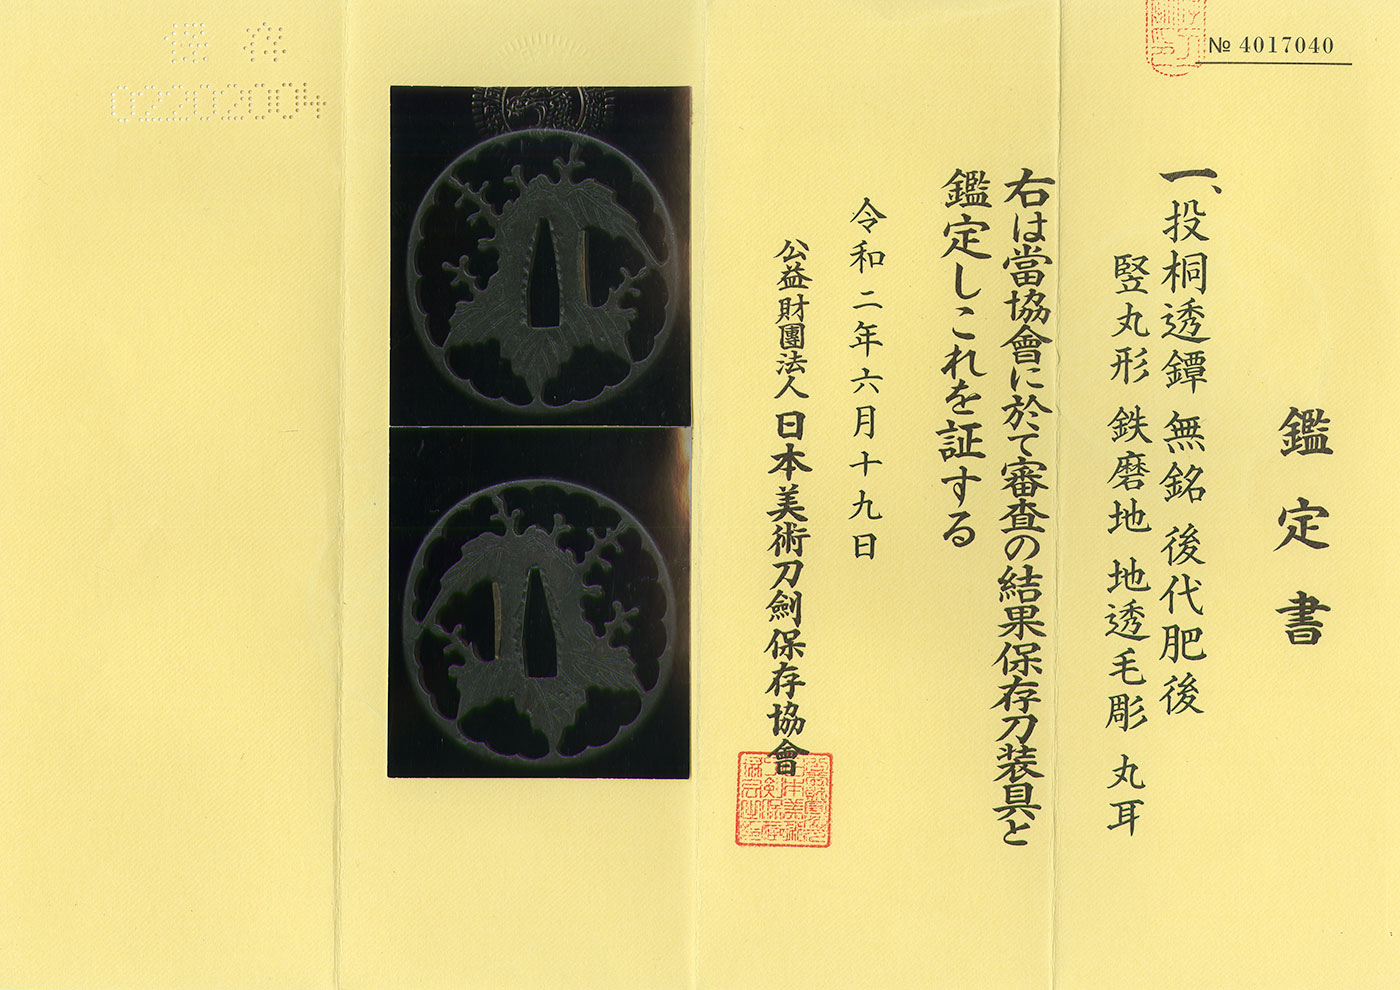 № 4017040
鑑定書
一、投桐透鐔 無銘 後代肥後
竪丸形 鉄磨地 地透毛彫 丸耳
右は當協會に於て審査の結果保存刀装具と
鑑定しこれを証する
令和二年六月十九日
公益財團法人 日本美術刀劍保存協會
保存
02202004